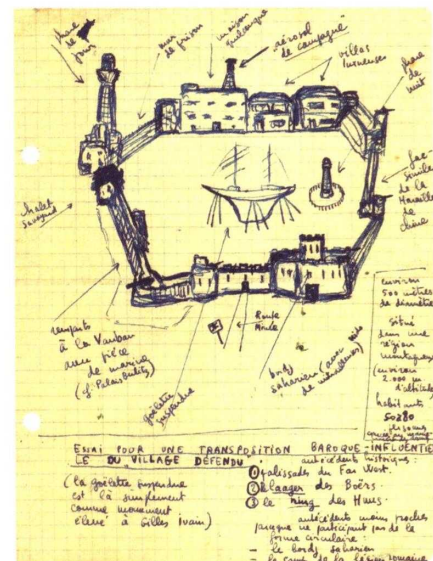 phare
de
jour
mur
de prison
maison
quelconque
aérosol
de campagne
villas
luxueuses
phare
de
nuit
chalet
savoyard
fac-
similé
de la
Muraille
de
Chine
remparts
à la Vauban
avec pièce
de marine
(cf. Palais Dulity)
goélette
suspendue
Route
Mule
bordj
saharien (avec
de mitrailleuses)
environ
500 mètres
de diamètre
situé
dans une
région
montagneuse
(environ
2.000 m
d'altitude)
habitants
50 à 80
personnes
ESSAI POUR UNE TRANSPOSITION BAROQUE-INFLUENTIEL-
LE DU VILLAGE DÉFENDU
(la goélette suspendue
est là simplement
comme monument
élevé à Gilles Ivain)
antécédents historiques :
① palissades du Far West.
② le laager des Boërs.
③ le ring des Huns.
antécédents moins proches
puisque ne participant pas de la
forme circulaire :
- le bordj saharien
- le camp de la légion romaine